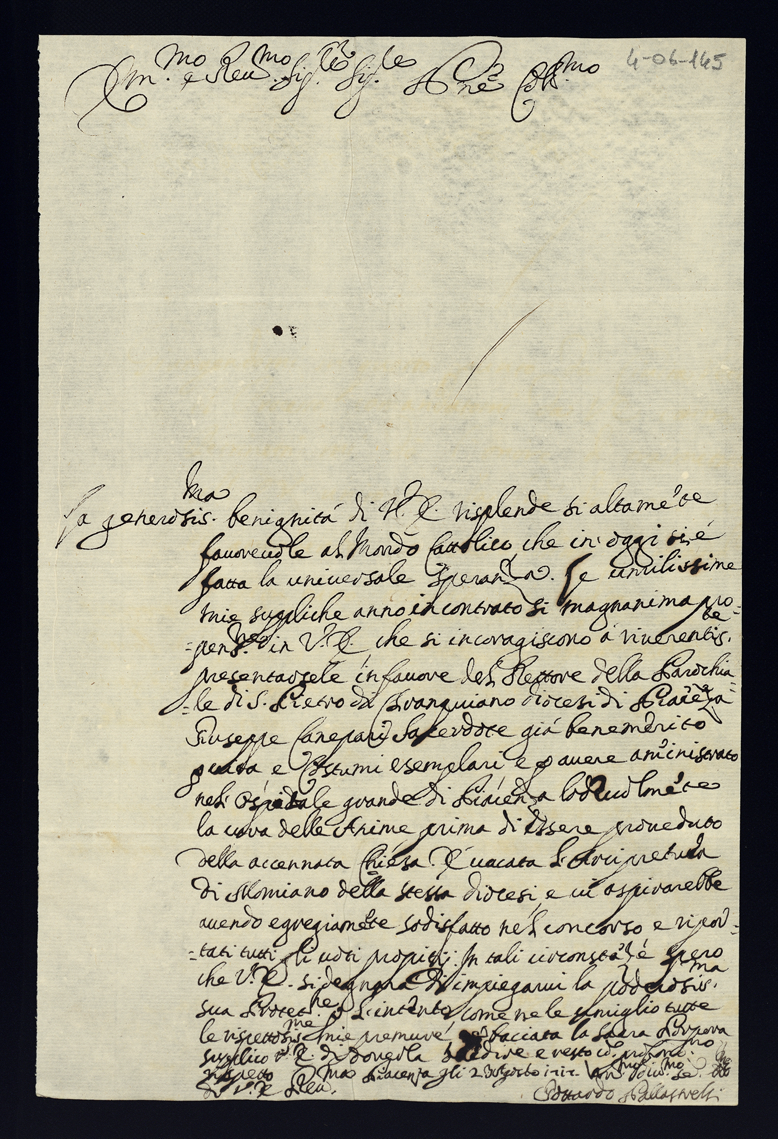 4-06-145
Em.mo e Reu.mo Sig.re Sig.re Pne Col.mo
La generosis.ma benignità di V.E. risplende si altamète
fauoreuole al Mondo Cattolico che in oggi si é
fatta la universale speranza. Se umilissime
mie suppliche anno incontrato si magnanima pro=
=pen.ne in V.E. che si incoragiscono á riverentis.te
presentarsele in fauore del Rettore della Parochia=
=le di S. Pietro di Pianzza
Giuseppe Canepari Sacerdote giá benemerito
e Costumi esemplari e p auere aministrato
nel Ospitale grande di Piacenza lodeuolmète
la cura delle Anime prima di essere proueduto
della accennata Chiesa. É uacata l'Arcipretura
di Momiano della stessa diocesi, e ui aspirarebbe
auendo egregiamète sodisfatto nel concorso e ripor=
=tati tutti li uoti propizi. In tali circonstàze spero
che V.E. si degnará di impiegarui la poderosis.ma
sua Protet.ne p l'intento come ne le umiglio tutte
le rispettosis.me mie premure, e baciata la Sacra Porpora
supplico V.E. di donerla e resto có profond.mo
rispetto
Di V.E. Reu.ma Piacenza gli 2 Agosto
Odoardo Pallastrelli